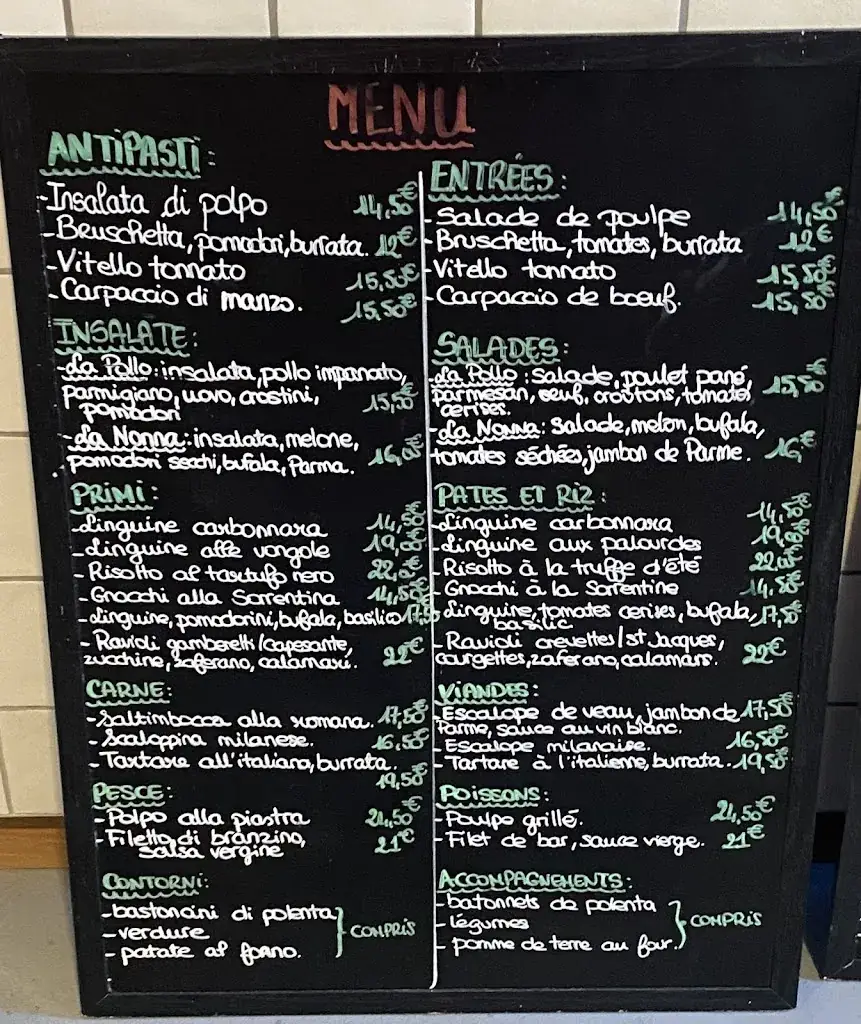 MENU
ANTIPASTI:
-Insalata di polpo 14,50€
-Bruschetta, pomodori, burrata. 12€
-Vitello tonnato 15,50€
-Carpaccio di manzo. 15,50€
INSALATE:
-La Pollo: insalata, pollo impanato,
parmigiano, uovo, crostini, 15,50€
pomodori
-La Nonna: insalata, melone,
pomodori secchi, bufala, Parma. 16,0€
PRIMI:
-Linguine carbonnara 14,50€
-Linguine alle vongole 19,00€
-Risotto al tartufo nero 22,0€
-Gnocchi alla Sorrentina 14,50€
-Linguine, pomodorini, bufala, basilico 17,50
-Ravioli gamberetti/capesante,
zucchine, zaferano, calamari. 22€
CARNE:
-Saltimbocca alla romana. 17,50€
-Scaloppina milanese. 16,50€
-Tartare all'italiana, burrata.
19,50€
PESCE:
-Polpo alla piastra 21,50€
-Filetto di branzino, 21€
salsa vergine
CONTORNI:
-bastoncini di polenta
-verdure COMPRIS
-patate al forno.
ENTRÉES:
-Salade de poulpe 14,50€
-Bruschetta, tomates, burrata 12€
-Vitello tonnato 15,50€
-Carpaccio de boeuf. 15,50€
SALADES:
-La Pollo: Salade, poulet pané,
parmesan, oeuf, croutons, tomates 15,50€
cerises.
-La Nonna: Salade, melon, bufala,
tomates séchées, jambon de Parme. 16€
PATES ET RIZ:
-Linguine carbonnara 14,50€
-Linguine aux palourdes 19,00€
-Risotto à la truffe d'été 22,0€
-Gnocchi à la Sorrentine 14,50€
-Linguine, tomates cerises, bufala, 17,50€
basilic
-Ravioli crevettes/st Jacques,
courgettes, zaferano, calamars. 22€
VIANDES:
-Escalope de veau, jambon de 17,50€
Parme, sauce au vin blanc.
-Escalope milanaise. 16,50€
-Tartare à l'italienne, burrata. 19,50€
POISSONS:
-Poulpe grillé. 21,50€
-Filet de bar, sauce vierge. 21€
ACCOMPAGNEMENTS:
-batonnets de polenta
-légumes COMPRIS
-pomme de terre au four.